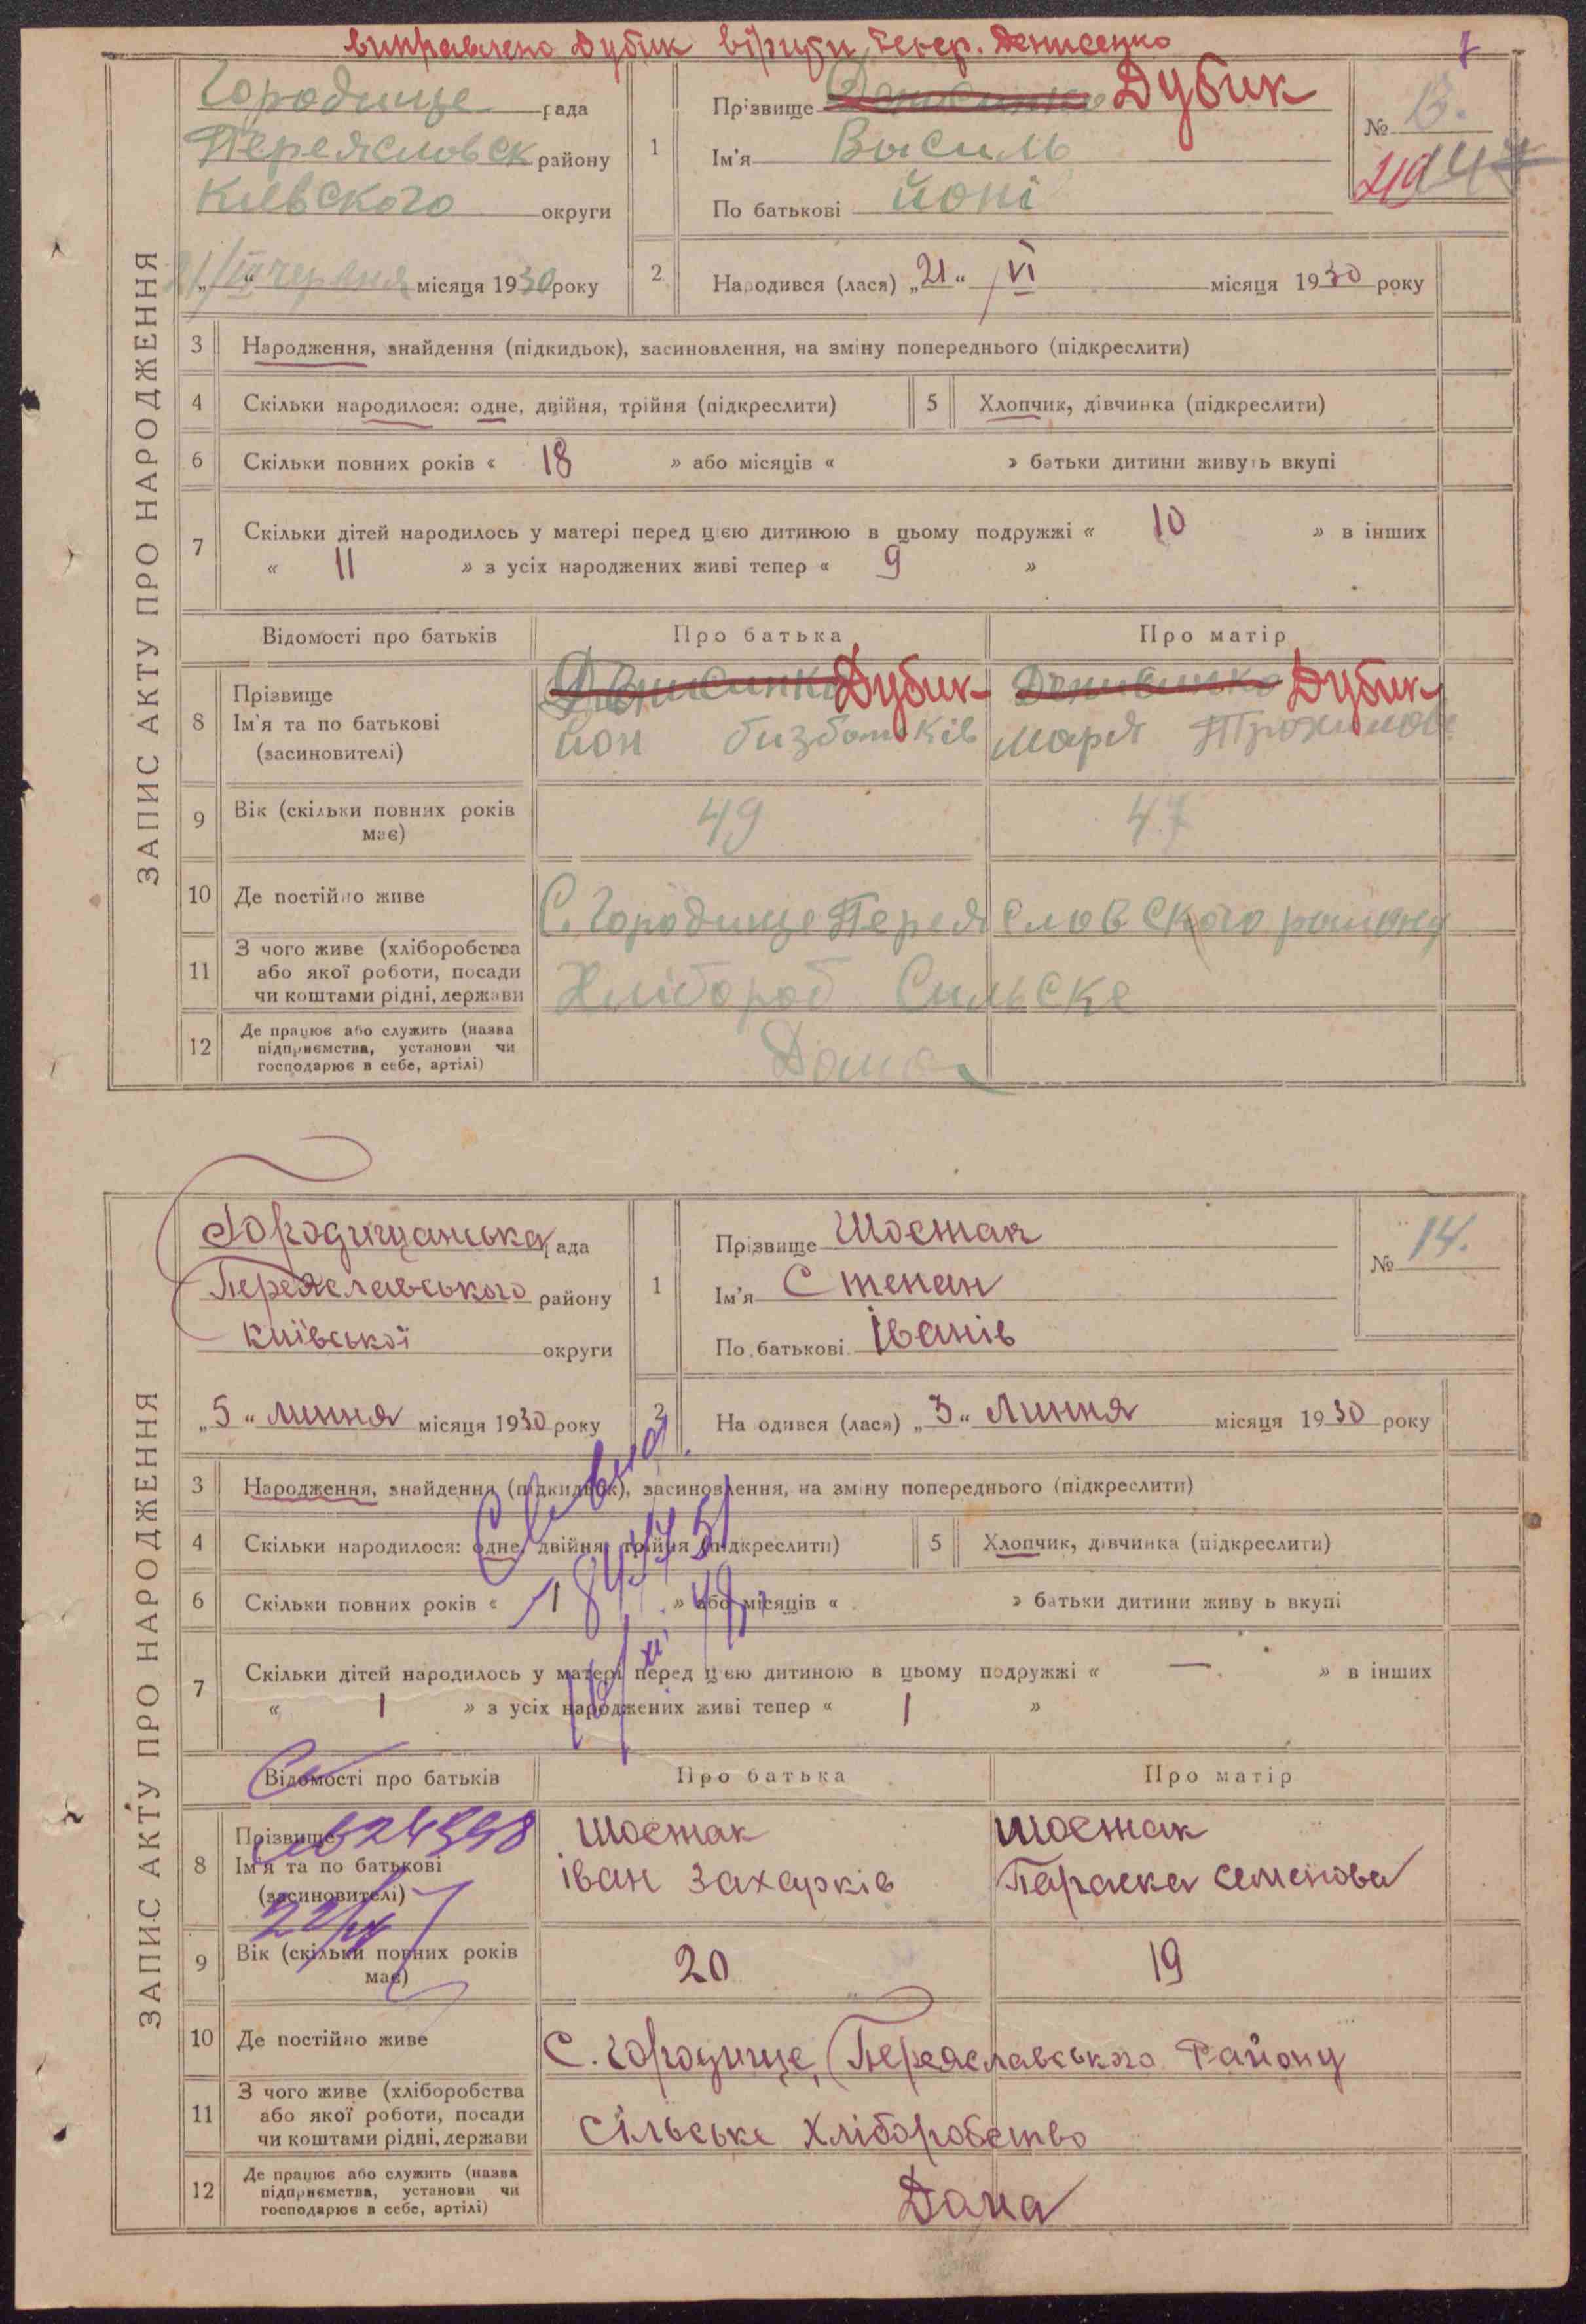 виправлено Дубик вірити секр. Денисенко
7
ЗАПИС АКТУ ПРО НАРОДЖЕННЯ
Городище рада
Переясловск району
Киевского округи
21/VI червня місяця 1930 року
1
Прізвище Денисинко Дубик
Ім'я Высиль
По батькові йоні
№ 13.
2
Народився (лася) „21“ VI місяця 1930 року
3 Народження, знайдення (підкидьок), засиновлення, на зміну попереднього (підкреслити)
4 Скільки народилося: одне, двійня, трійня (підкреслити)
5 Хлопчик, дівчинка (підкреслити)
6 Скільки повних років « 18 » або місяців « » батьки дитини живуть вкупі
7 Скільки дітей народилось у матері перед цією дитиною в цьому подружжі « 10 » в інших
« 11 » з усіх народжених живі тепер « 9 »
Відомості про батьків Про батька Про матір
8 Прізвище
Ім'я та по батькові
(засиновителі)
Денисинко Дубик
йон бизбатьків
Денисинко Дубик
Марія Трохимова
9 Вік (скільки повних років
має)
49 47
10 Де постійно живе
С. Городище Переясловского району
11 З чого живе (хліборобства
або якої роботи, посади
чи коштами рідні, держави
Хлібороб Сильске
12 Де працює або служить (назва
підприємства, установи чи
господарює в себе, артілі)
Дома
ЗАПИС АКТУ ПРО НАРОДЖЕННЯ
Городищанська рада
Переяславського району
Київської округи
„5“ липня місяця 1930 року
1
Прізвище Шостак
Ім'я Степан
По батькові Іванів
№ 14.
2
Народився (лася) „3“ Липня місяця 1930 року
3 Народження, знайдення (підкидьок), засиновлення, на зміну попереднього (підкреслити)
4 Скільки народилося: одне, двійня, трійня (підкреслити)
5 Хлопчик, дівчинка (підкреслити)
6 Скільки повних років « 1 » або місяців « » батьки дитини живуть вкупі
7 Скільки дітей народилось у матері перед цією дитиною в цьому подружжі « — » в інших
« 1 » з усіх народжених живі тепер « 1 »
Відомості про батьків Про батька Про матір
8 Прізвище
Ім'я та по батькові
(засиновителі)
Шостак
Іван Захарків
Шостак
Параска Семенова
9 Вік (скільки повних років
має)
20 19
10 Де постійно живе
С. Городище, Переяславського Району
11 З чого живе (хліборобства
або якої роботи, посади
чи коштами рідні, держави
Сільське Хліборобство
12 Де працює або служить (назва
підприємства, установи чи
господарює в себе, артілі)
Дома